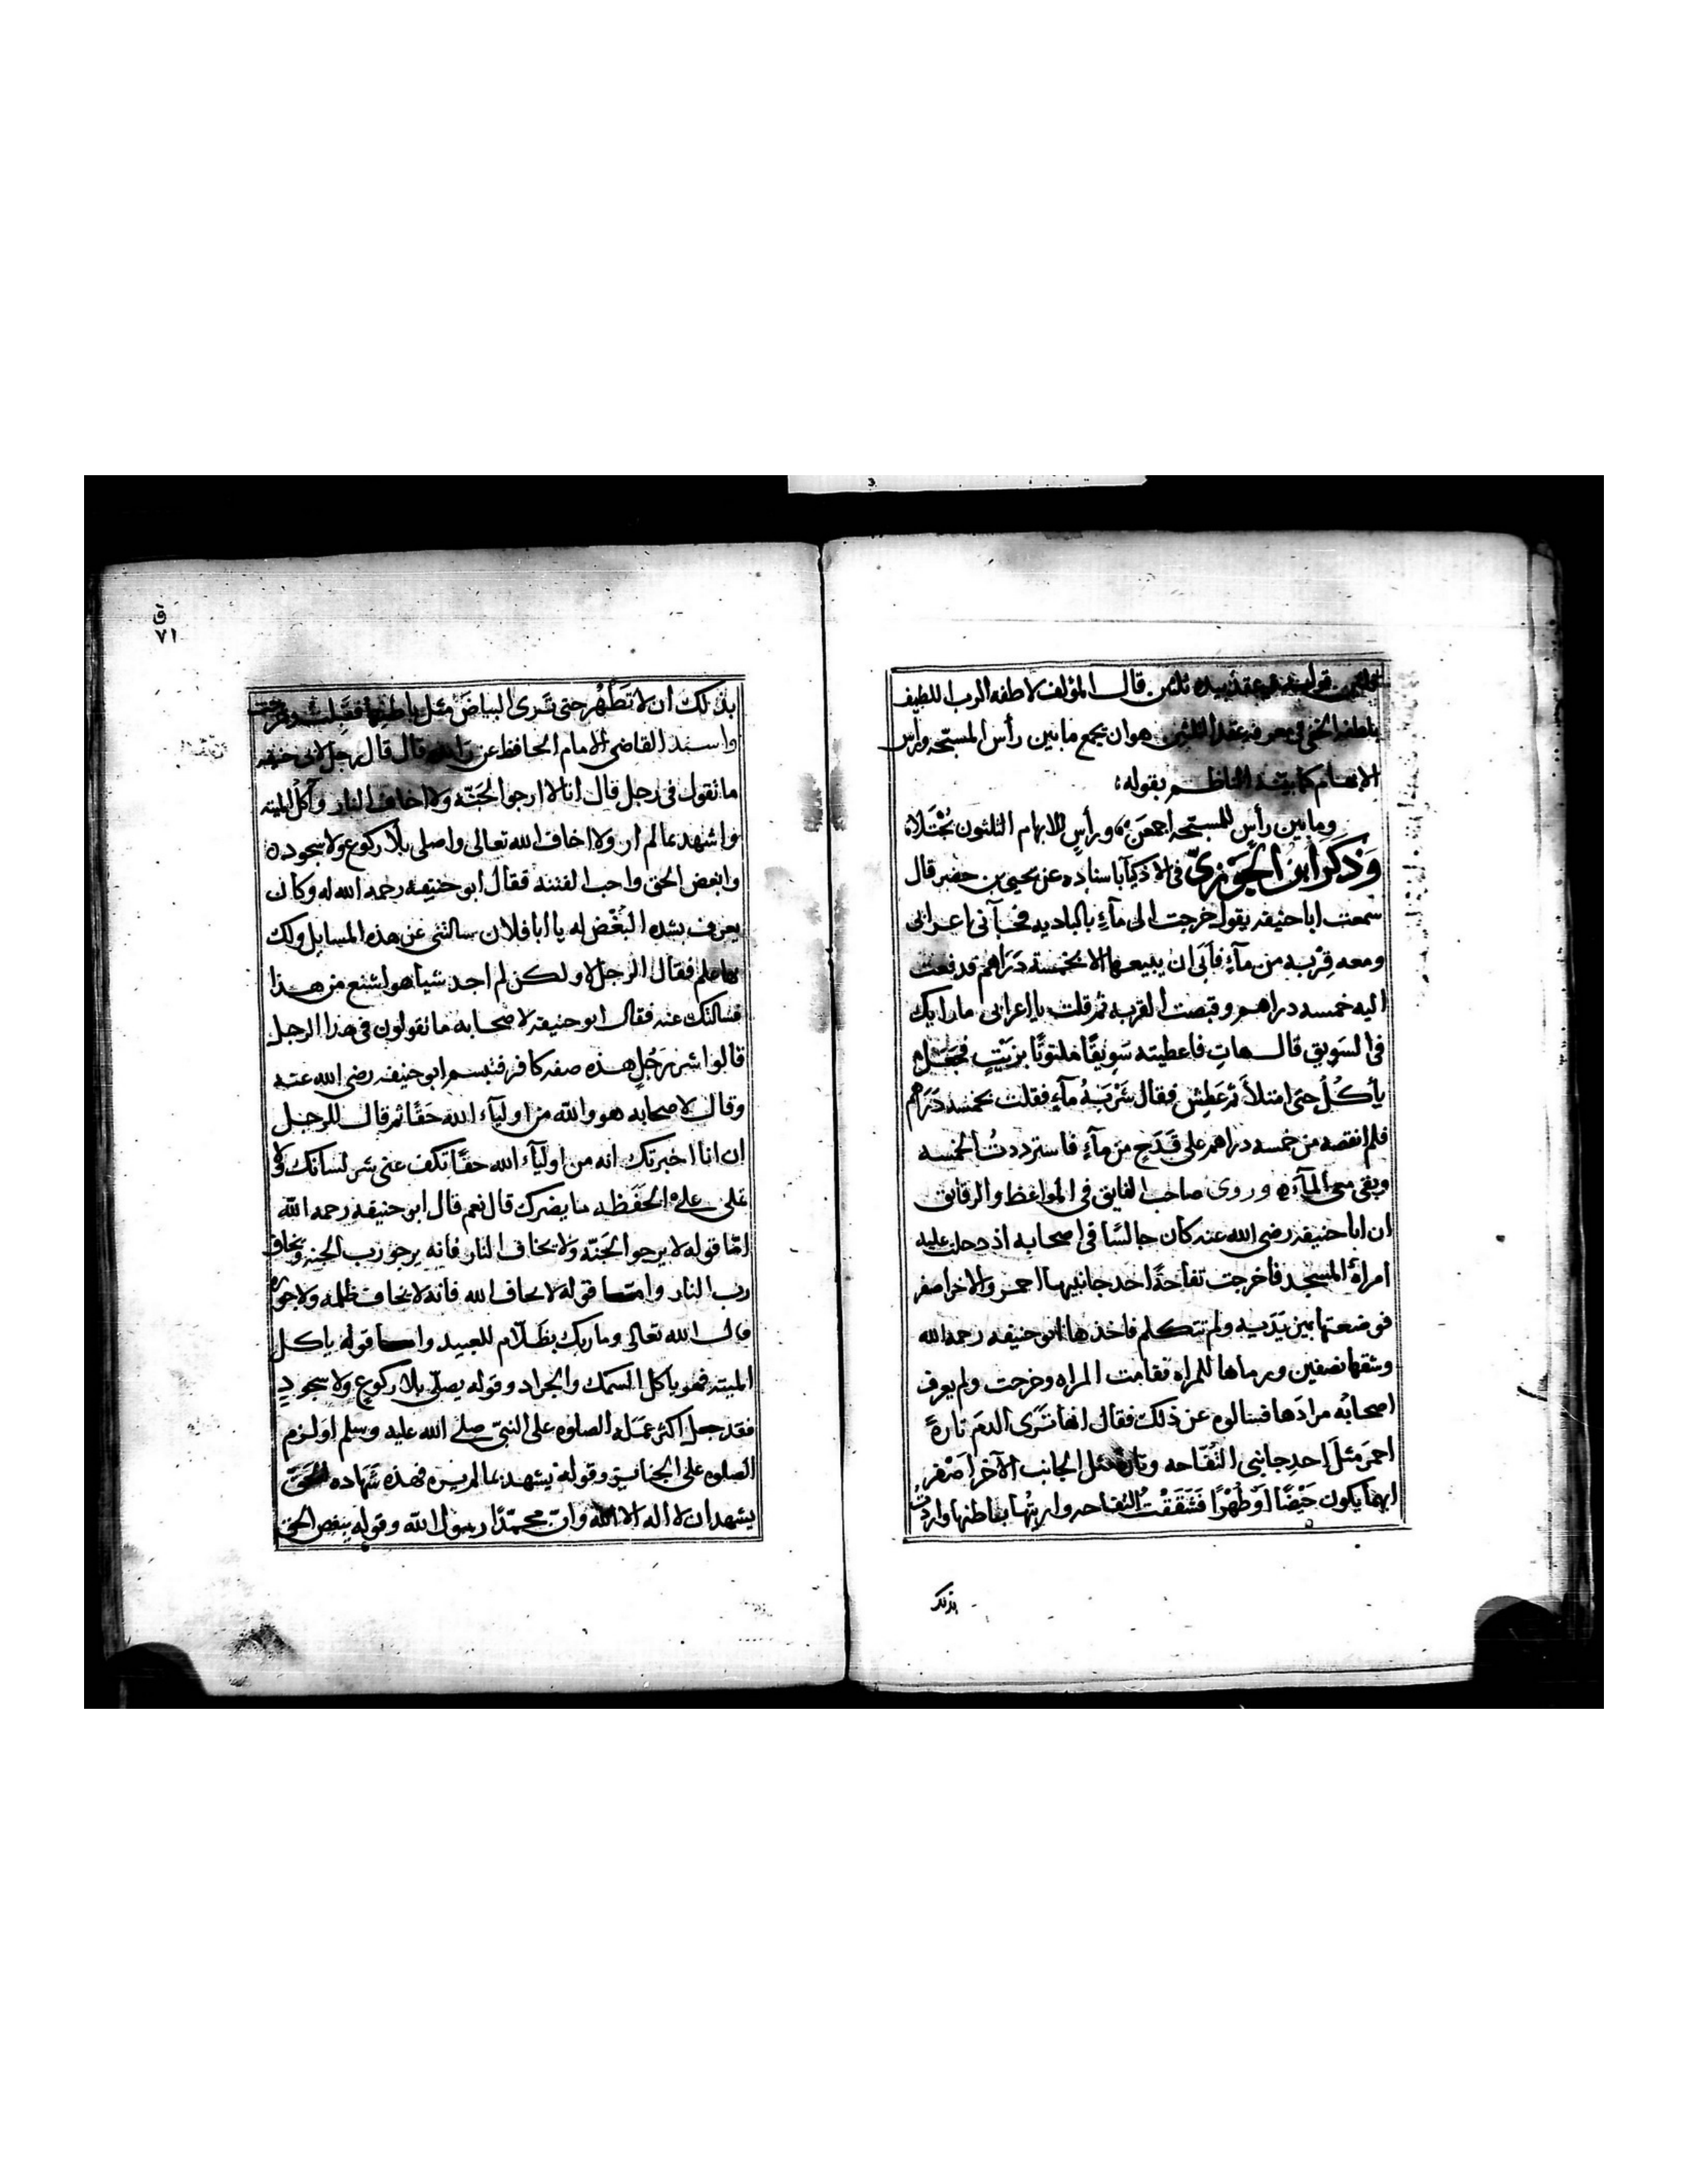 قال المؤلف لاطفه الرب اللطيف
بلطفه الخفي في معرفه عقد الثلثين هو ان يجمع ما بين رأس المسبّحه ورأس
الابهام كما بيّنه الناظم بقوله
وما بين رأس للمسبحه اجمعن ورأس للابهام الثلثون تجتلا
وذكر ابن الجوزيّ في الاذكيآ باسناده عن يحيى بن جعفر قال
سمعت ابا حنيفه يقول خرجت الى مآء بالباديه فجآني اعرابي
ومعه قربه من مآء فأبى ان يبيعها الا بخمسة دراهم فدفعت
اليه خمسه دراهم وقبضت القربه ثم قلت يا اعرابي ما رايك
في السويق قال هات فاعطيته سويقًا ملتوتًا بزيت فجعل
يأكل حتى امتلأ ثم عطش فقال شربة مآء فقلت بخمسه دراهم
فلم انقصه من خمسه دراهم على قدح من مآء فاسترددت الخمسه
وبقى معى المآء وروى صاحب الفايق في المواعظ والرقائق
ان ابا حنيفه رضى الله عنه كان جالسًا في اصحابه اذ دخلت عليه
امراة المسجد فأخرجت تفاحةً احد جانبيها احمر والاخر اصفر
فوضعتها بين يديه ولم تتكلم فاخذها ابو حنيفه رحمه الله
وشقها نصفين ورماها للمراه فقامت المراه وخرجت ولم يعرف
اصحابه مرادها فسالوه عن ذلك فقال انها ترى الدم تارةً
احمر مثل احد جانبي التفاحه وتارة مثل الجانب الآخر اصفر
ايهما يكون حيضًا او طهرًا فشققت التفاحه واريتها بباطنها واردت
بذلك
ق
٧١
بذلك ان لا تطهر حتى ترى البياض مثل باطنها
واسند القاضي الامام الحافظ عن قال قال رجل لابي حنيفه
ما تقول في رجل قال انا لا ارجو الجنّه ولا اخاف النار وآكل الميته
واشهد بما لم ار ولا اخاف الله تعالى واصلى بلا ركوع ولا سجود
وابغض الحق واحب الفتنه فقال ابو حنيفه رحمه الله له وكان
يعرف بشده البغض له يا ابا فلان سالتنى عن هذه المسايل ولك
بها علم فقال الرجل لا ولكن لم اجد شيا هو اشنع من هذا
فسالتك عنه فقال ابو حنيفه لاصحابه ما تقولون في هذا الرجل
قالوا شر رجل هذه صفه كافر فتبسم ابو حنيفه رضى الله عنه
وقال لاصحابه هو والله من اوليآء الله حقًا ثم قال للرجل
ان انا اخبرتك انه من اوليآء الله حقًا تكف عنى شر لسانك ولا
تملى على الحفظه ما يضرك قال نعم قال ابو حنيفه رحمه الله
امّا قوله لا يرجو الجنّه ولا يخاف النار فانه يرجو رب الجنه ويخاف
رب النار وامّا قوله لا يخاف الله فانه لا يخاف ظلمه ولا جوره
قال الله تعالى وما ربك بظلّام للعبيد وامّا قوله ياكل
الميته فهو ياكل السمك والجراد وقوله يصلّى بلا ركوع ولا سجود
فقد جعل اكثر عمله الصلوه على النبيّ صلى الله عليه وسلم او لزم
الصلوه على الجنائز وقوله يشهد بما لم يره فهذه شهاده الحق
يشهد ان لا اله الا الله وانّ محمّدًا رسول الله وقوله يبغض الحق